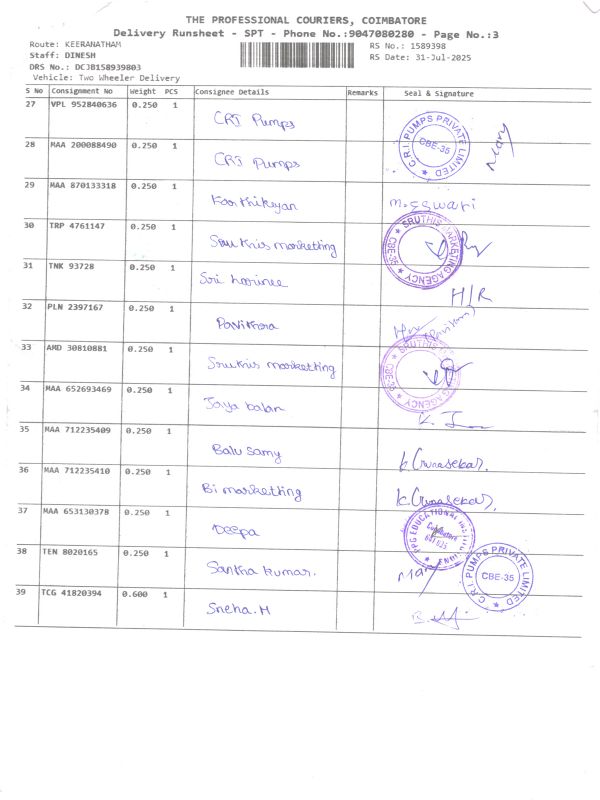 THE PROFESSIONAL COURIERS, COIMBATORE
Delivery Runsheet - SPT - Phone No.:9047080280 - Page No.:3
Route: KEERANATHAM RS No.: 1589398
Staff: DINESH RS Date: 31-Jul-2025
DRS No.: DCJB158939803
Vehicle: Two Wheeler Delivery
S No Consignment No Weight PCS Consignee Details Remarks Seal & Signature
27 VPL 952840636 0.250 1 CRI Pumps
C.R.I. PUMPS PRIVATE LIMITED CBE-35
28 MAA 200088490 0.250 1 CRI Pumps
29 MAA 870133318 0.250 1 Karthikeyan M. Eswari
30 TRP 4761147 0.250 1 Sruthis marketting SRUTHIS MARKETING AGENCY CBE-35
31 TNK 93728 0.250 1 Sri harinee H/R
32 PLN 2397167 0.250 1 Pavithra
33 AMD 30810881 0.250 1 Sruthis marketting SRUTHIS MARKETING AGENCY CBE-35
34 MAA 652693469 0.250 1 Jaya balan
35 MAA 712235409 0.250 1 Balu samy K. Gunasekar.
36 MAA 712235410 0.250 1 Bi marketting K. Gunasekar.
37 MAA 653130378 0.250 1 Deepa PPG EDUCATIONAL Coimbatore 641 035
38 TEN 8020165 0.250 1 Santha kumar. Mary C.R.I. PUMPS PRIVATE LIMITED CBE-35
39 TCG 41820394 0.600 1 Sneha. M